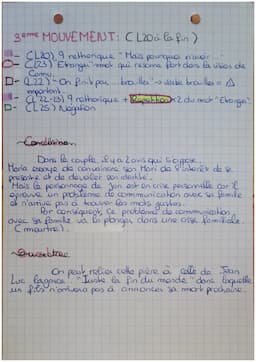 3ème MOUVEMENT: (L20 à la fin)
- (L20) 9 rethorique "Mais pourquoi n'avoir..."
- (L23) Etrange = mot qui résume fort dans la vision de Camus.
- (L22) - On finit par... brouiller → verbe brouiller = Δ important.
- (L22-23) 9 rethorique + Répétition x2 du mot "Etrange".
- (L25) Négation
Conclusion
Dans le couple, il y a 2 avis qui s'oppose.
Maria essaye de convaincre son Mari de l'intérêt de se
presenté et de dévoiler son identité.
Mais le personnage de Jan est en crise personnelle car il
éprouve un problème de communication avec sa famille
et n'arrive pas à trouver les mots justes.
Par conséquent, ce problème de communication
avec sa famille va le plonger dans une crise familiale.
(meurtre).
Ouverture
On peut relier cette pièce à celle de Jean
Luc Lagarce "Juste la fin du monde" dans laquelle
un fils n'arrivera pas à annoncer sa mort prochaine.